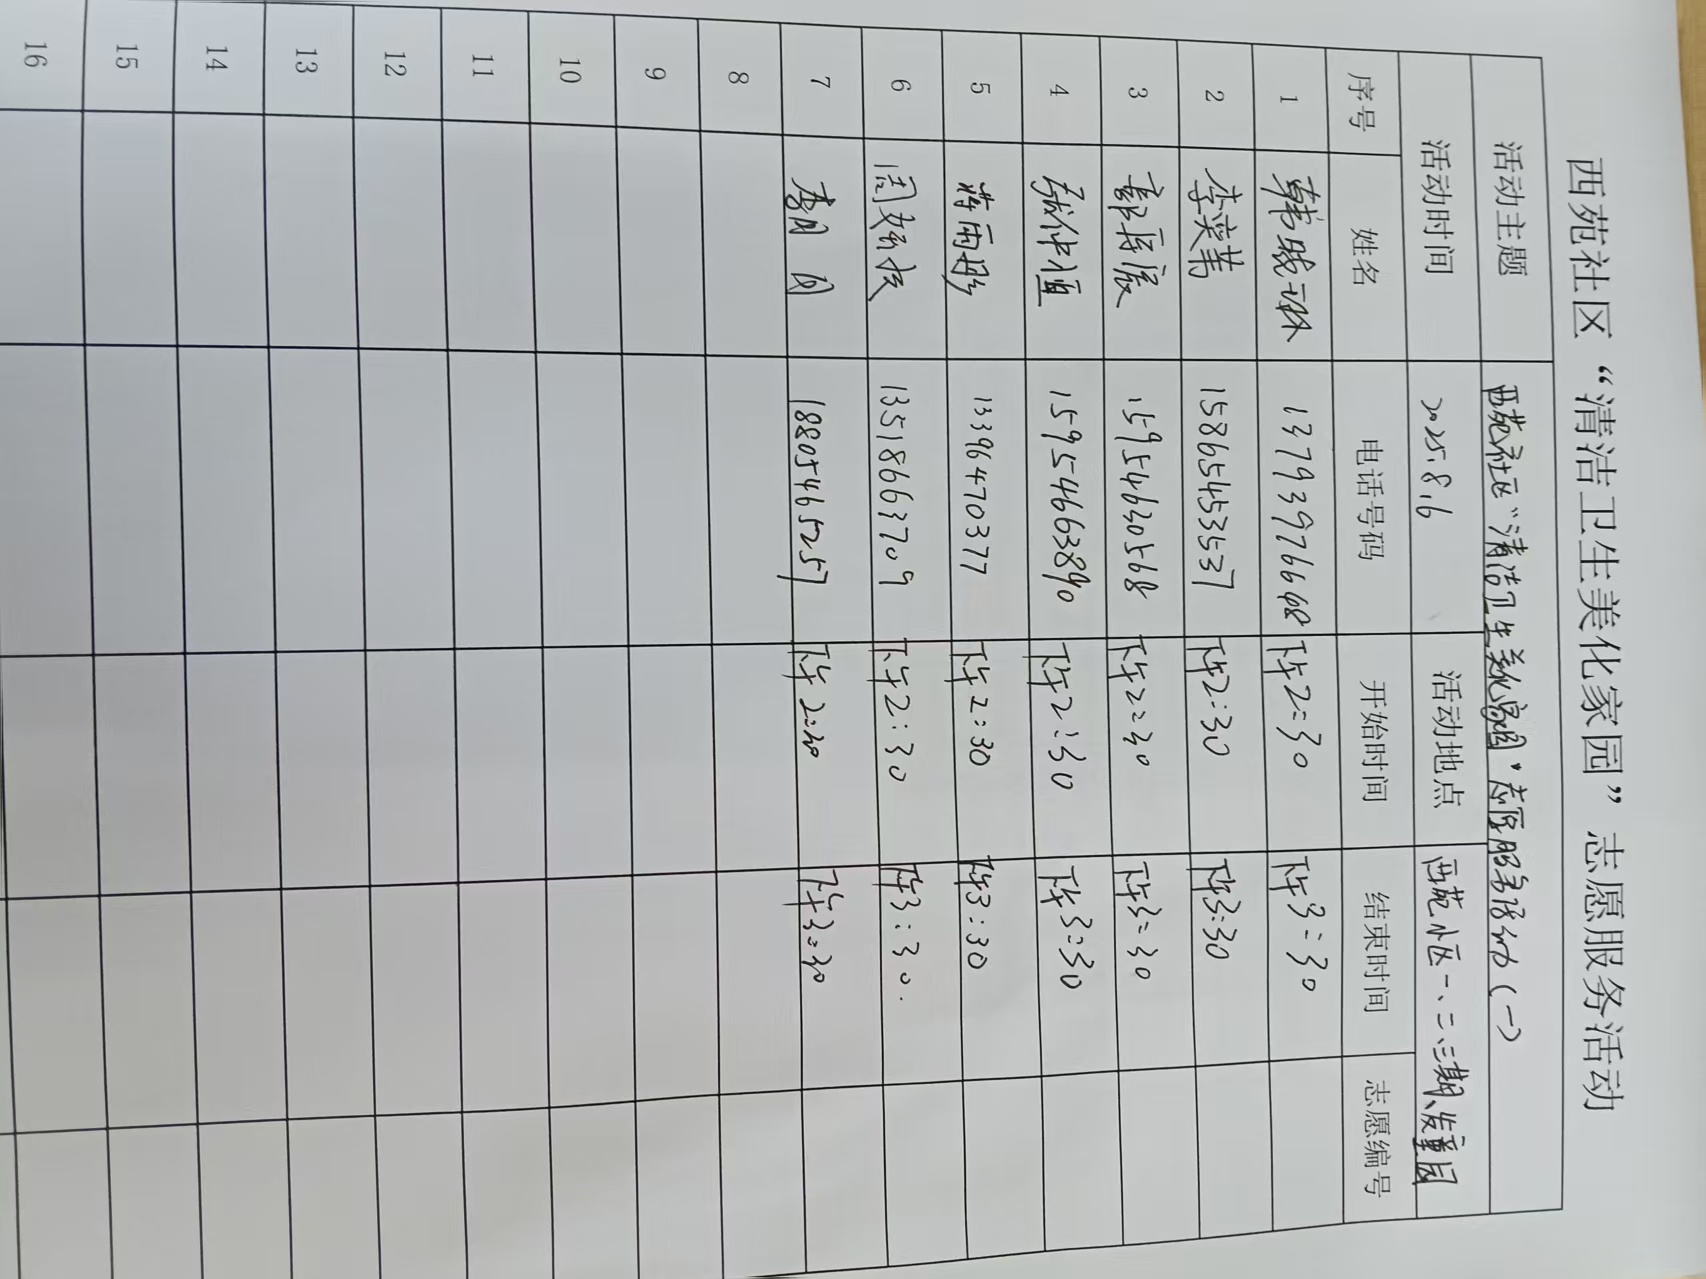 西苑社区“清洁卫生美化家园”志愿服务活动
活动主题 西苑社区“清洁卫生美化家园”志愿服务活动（一）
活动时间 2025.8.6 活动地点 西苑小区一、二、三期、发童园
序号 姓名 电话号码 开始时间 结束时间 志愿编号
1 13793976648 下午2:30 下午3:30
2 李奕菁 15865453537 下午2:30 下午3:30
3 15954630568 下午2:30 下午3:30
4 张仲恒 15954663890 下午2:30 下午3:30
5 蒋雨彤 13396470377 下午2:30 下午3:30
6 周 13518663709 下午2:30 下午3:30.
7 李月月 18805465257 下午2:30 下午3:30
8
9
10
11
12
13
14
15
16